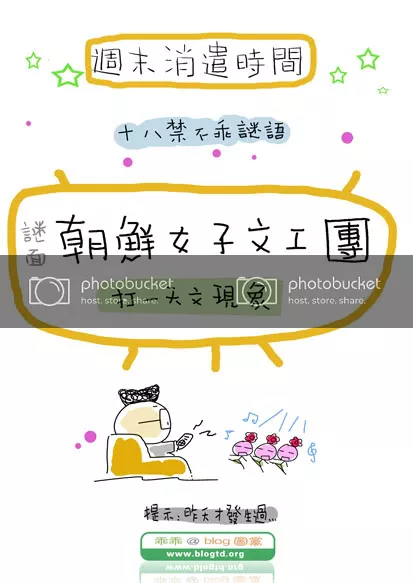 週末消遣時間
十八禁不乖謎語
謎面
朝鮮女子文工團
photobucket
host. store. share.
photobucket
host. store. share.
打一天文現象
提示:昨天才發生過...
乖乖@blog圖黨
www.blogtd.org